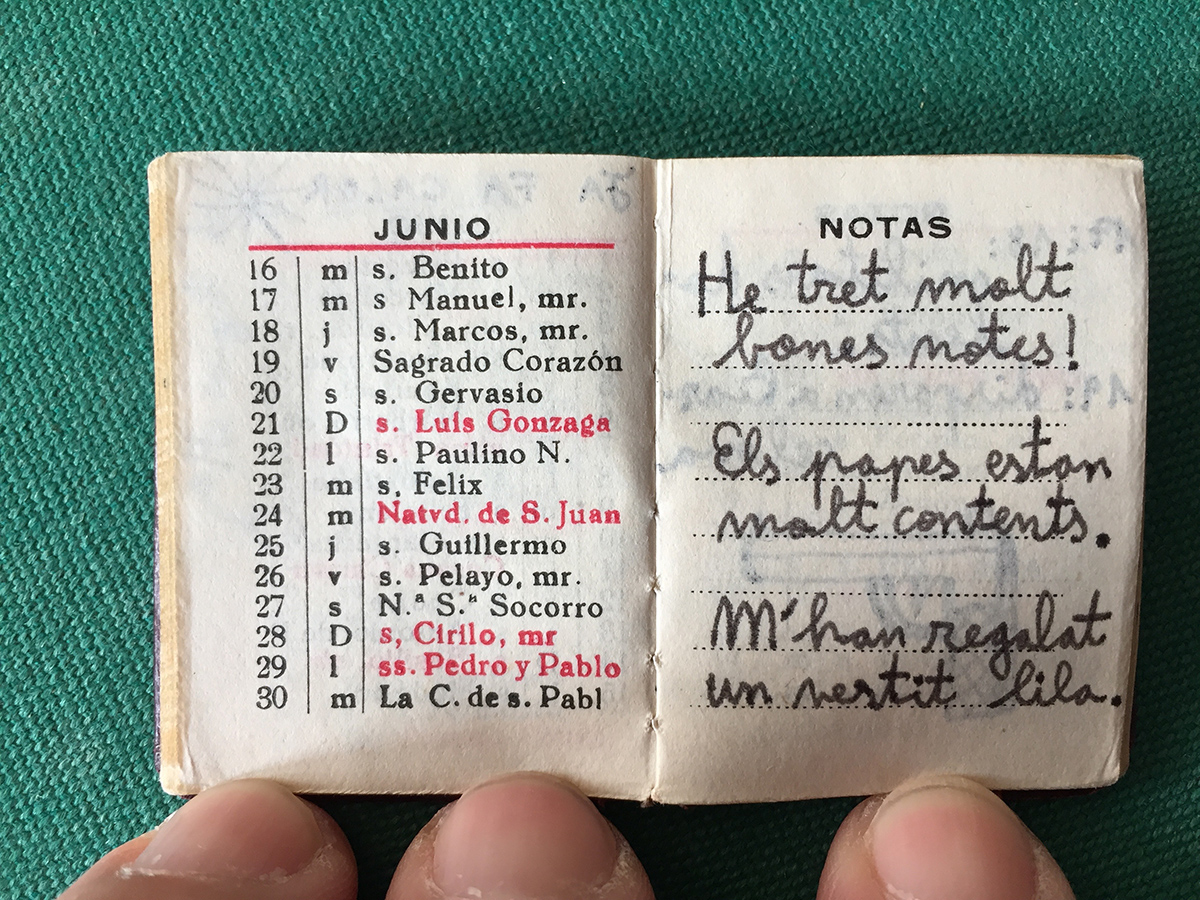 JUNIO
16 m s. Benito
17 m s Manuel, mr.
18 j s. Marcos, mr.
19 v Sagrado Corazón
20 s s. Gervasio
21 D s. Luis Gonzaga
22 l s. Paulino N.
23 m s, Felix
24 m Natvd. de S. Juan
25 j s. Guillermo
26 v s. Pelayo, mr.
27 s N.ª S.ª Socorro
28 D s, Cirilo, mr
29 l ss. Pedro y Pablo
30 m La C. de s. Pabl
NOTAS
He tret molt
bones notes!
Els papes estan
molt contents.
M'han regalat
un vestit lila.